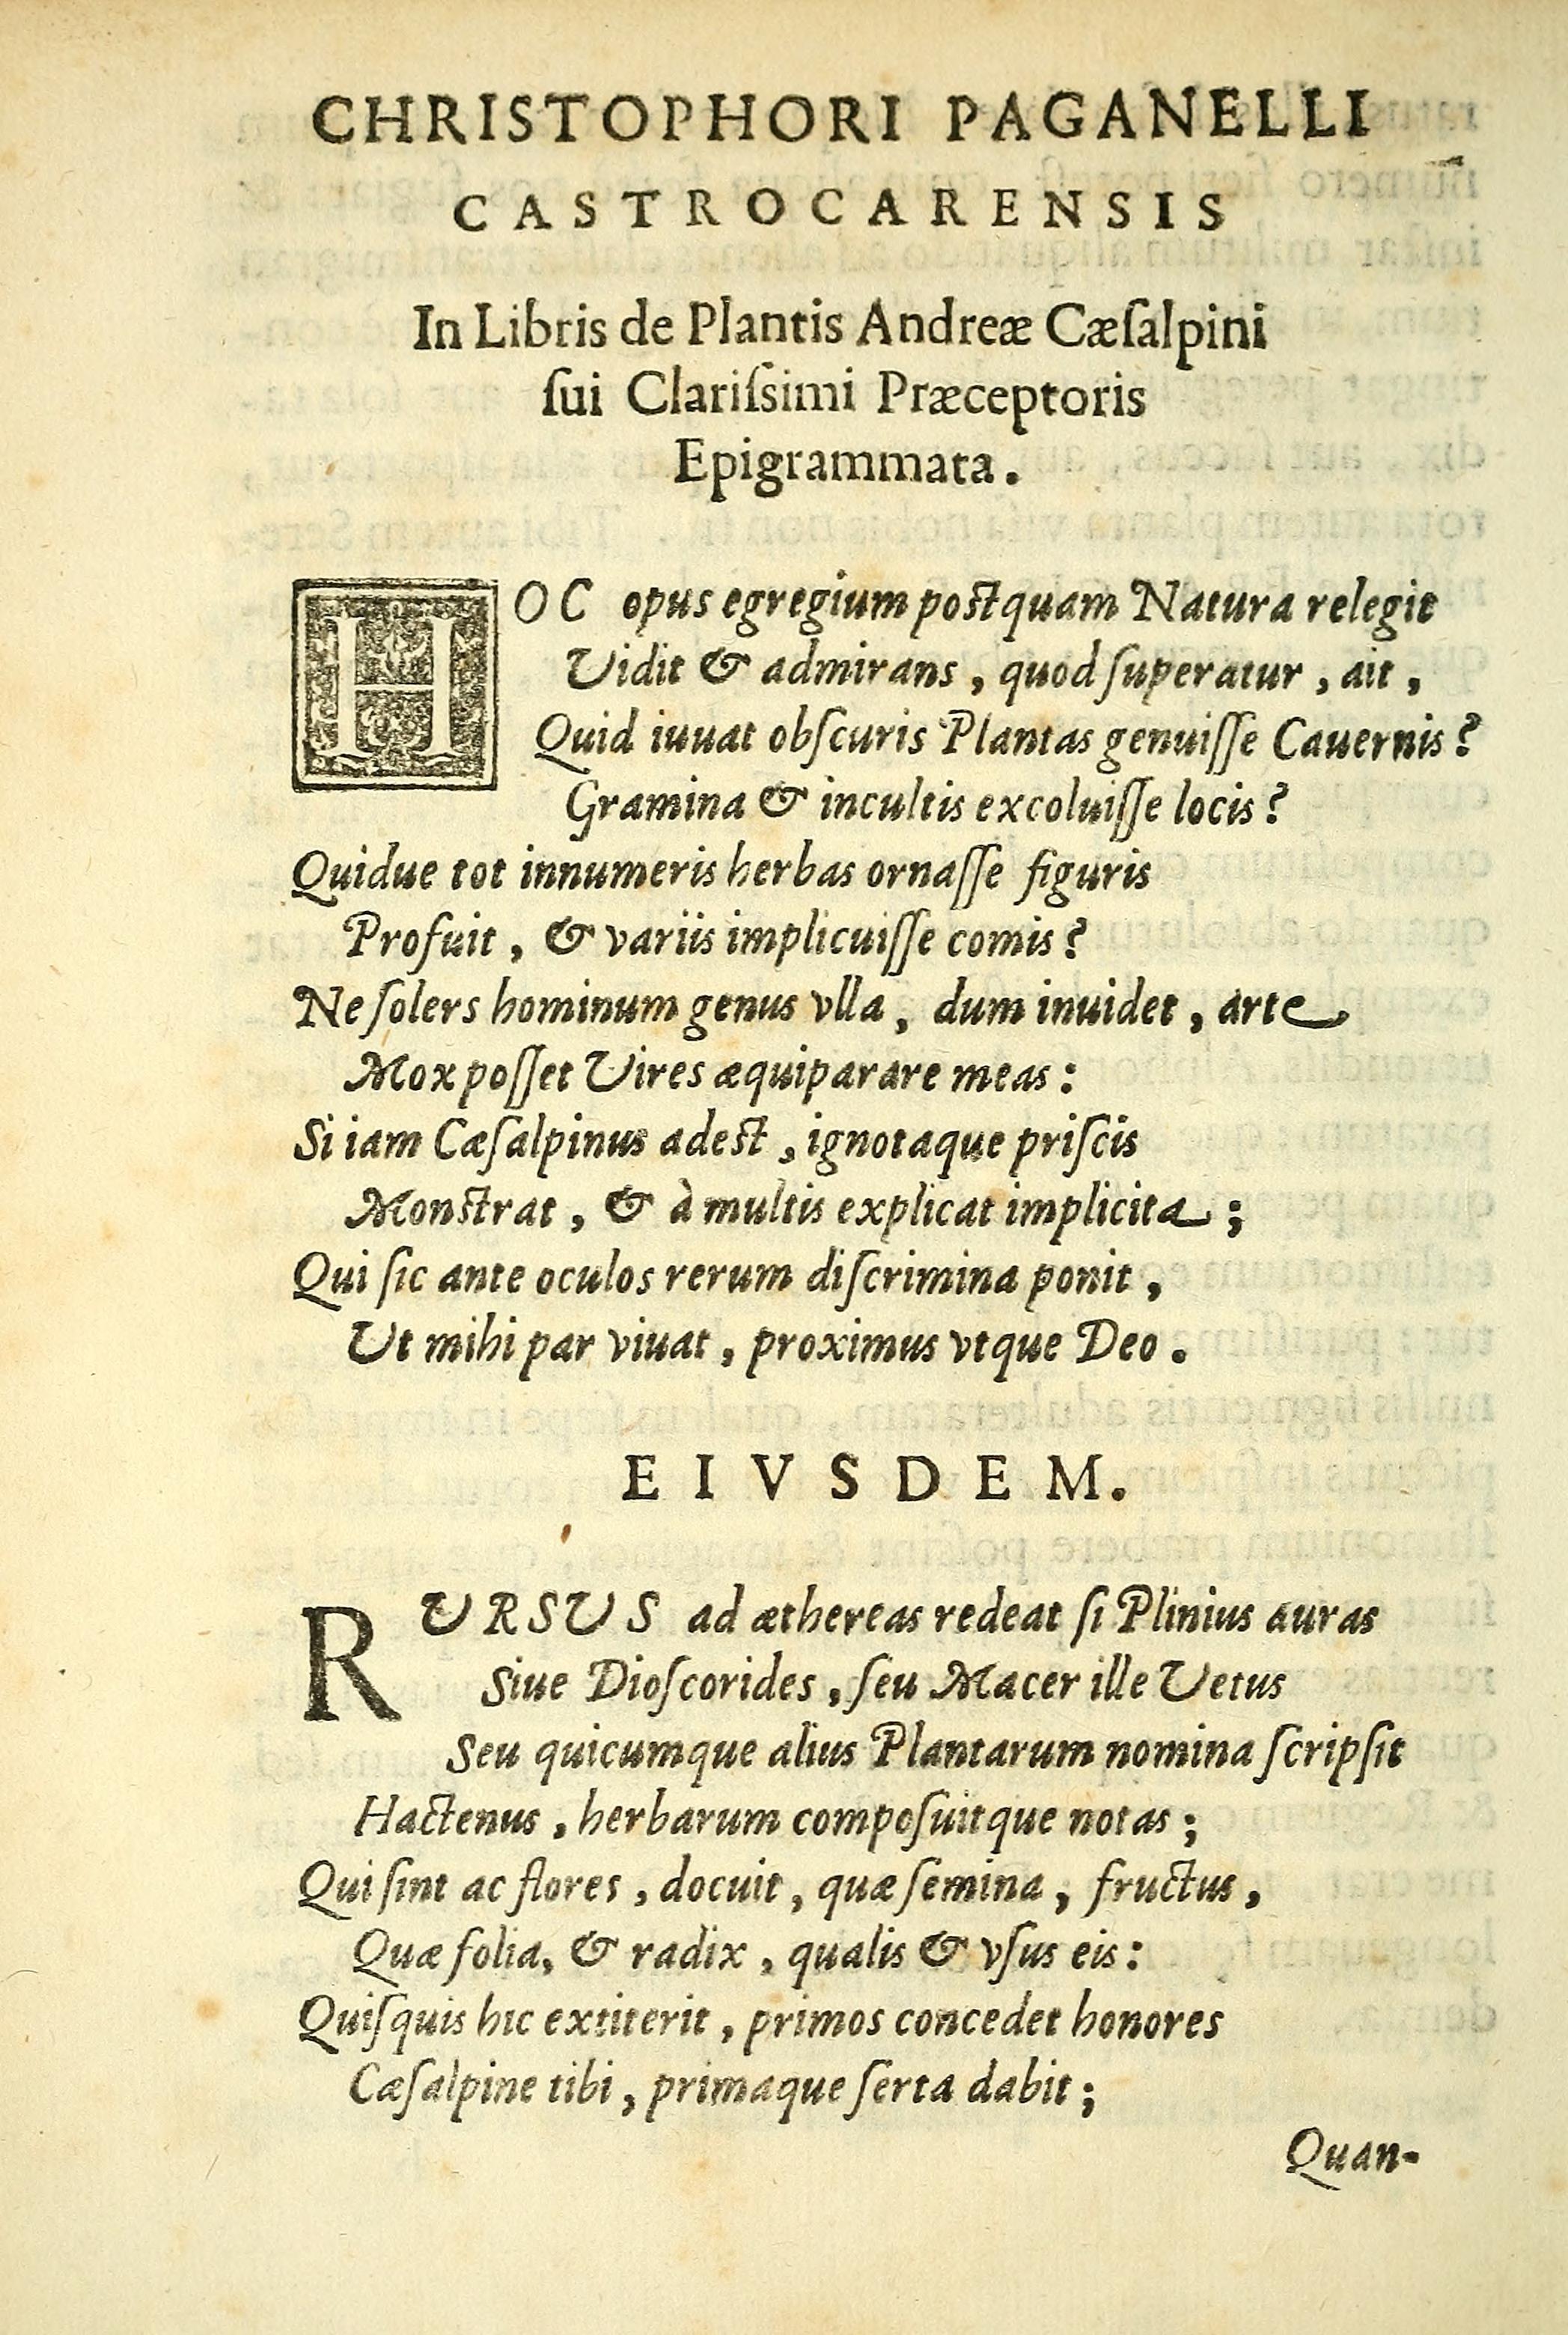 CHRISTOPHORI PAGANELLI
CASTROCARENSIS
In Libris de Plantis Andreæ Cæſalpini
ſui Clariſsimi Præceptoris
Epigrammata.
HOC opus egregium postquam Natura relegit
Vidit & admirans, quod ſuperatur, ait,
Quid iuuat obſcuris Plantas genuiſſe Cauernis?
Gramina & incultis excoluiſſe locis?
Quidue tot innumeris herbas ornaſſe figuris
Profuit, & variis implicuiſſe comis?
Ne ſolers hominum genus vlla, dum inuidet, arte
Mox poſſet Vires æquiparare meas:
Si iam Cæſalpinus adest, ignotaque priſcis
Monstrat, & à multis explicat implicita;
Qui ſic ante oculos rerum diſcrimina ponit,
Ut mihi par viuat, proximus vtque Deo.
EIVSDEM.
RURSUS ad æthereas redeat ſi Plinius auras
Siue Dioſcorides, ſeu Macer ille Vetus
Seu quicumque alius Plantarum nomina ſcripſit
Hactenus, herbarum compoſuitque notas;
Qui ſint ac flores, docuit, quæ ſemina, fructus,
Quæ folia, & radix, qualis & vſus eis:
Quiſquis hic extiterit, primos concedet honores
Cæſalpine tibi, primaque ſerta dabit;
Quan-